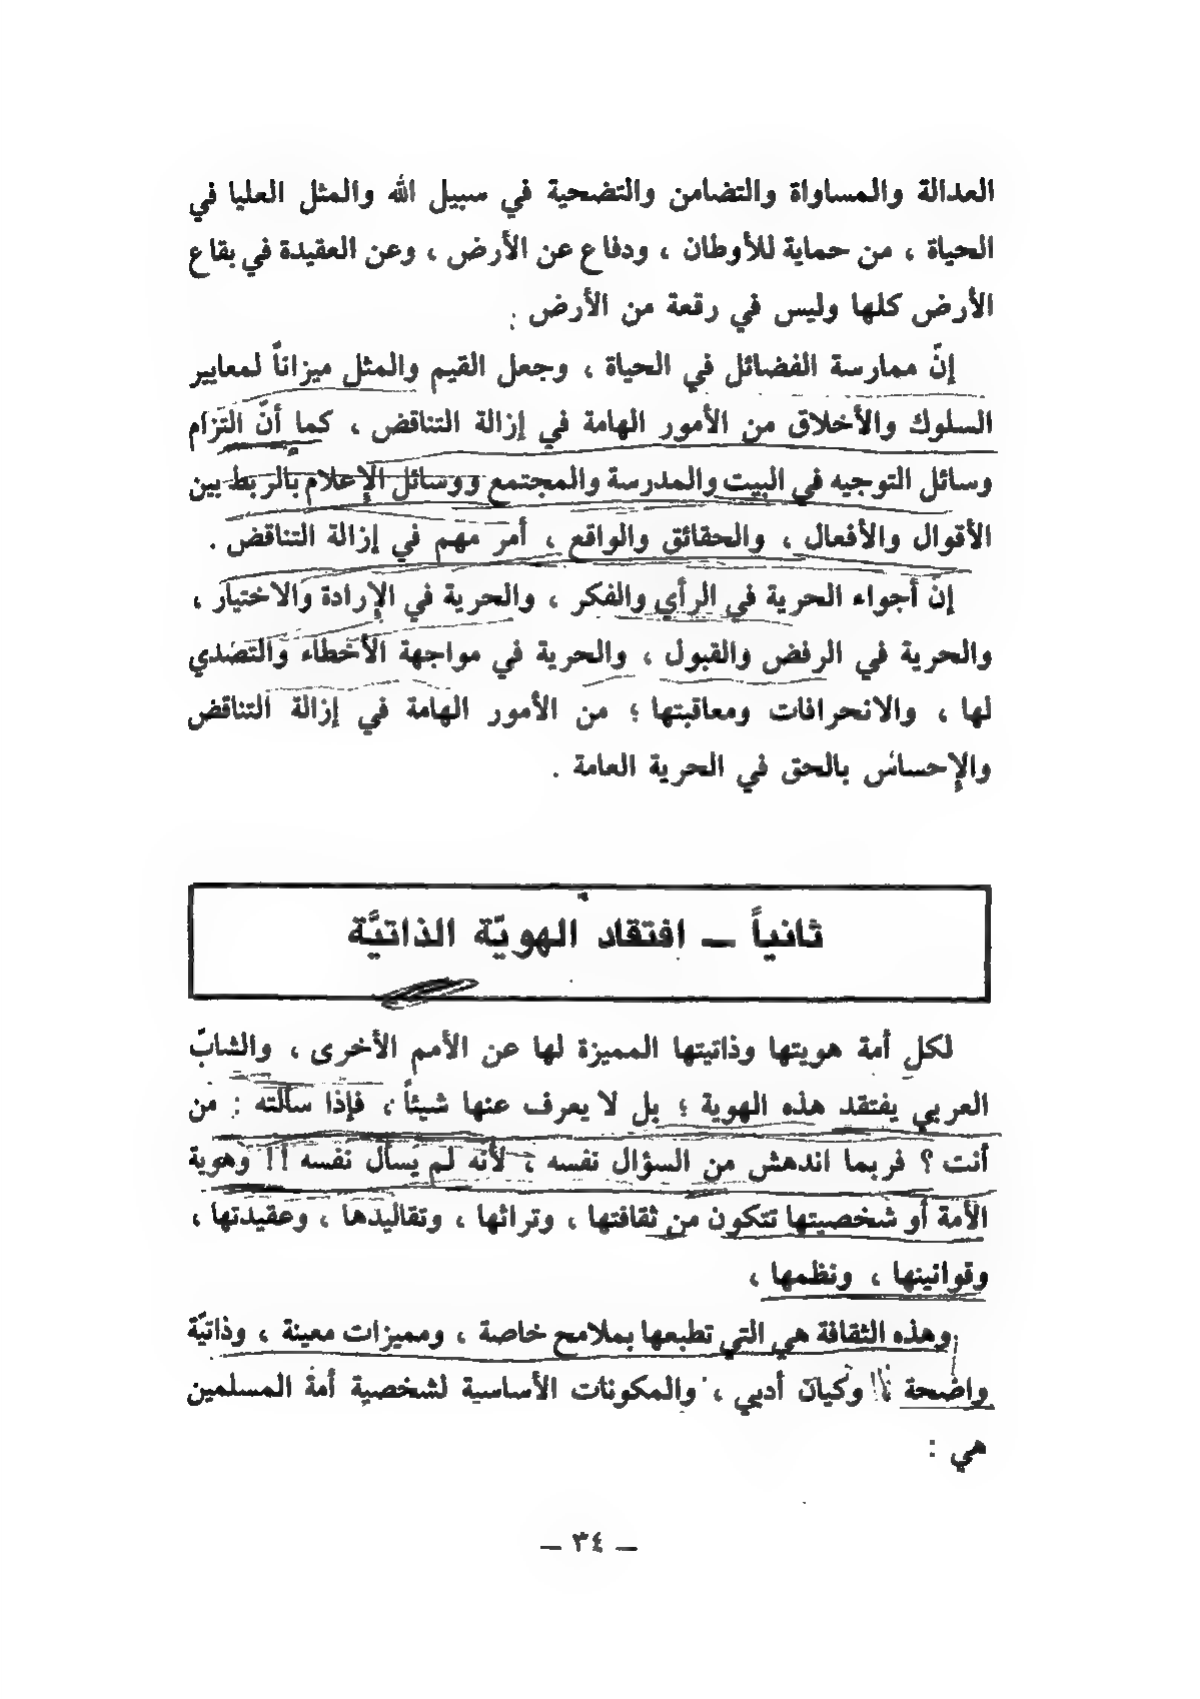 العدالة والمساواة والتضامن والتضحية في سبيل الله والمثل العليا في
الحياة ، من حماية للأوطان ، ودفاع عن الأرض ، وعن العقيدة في بقاع
الأرض كلها وليس في رقعة من الأرض .
إنّ ممارسة الفضائل في الحياة ، وجعل القيم والمثل ميزاناً لمعايير
السلوك والأخلاق من الأمور الهامة في إزالة التناقض ، كما أنّ التزام
وسائل التوجيه في البيت والمدرسة والمجتمع ووسائل الإعلام بالربط بين
الأقوال والأفعال ، والحقائق والواقع ، أمر مهم في إزالة التناقض .
إن أجواء الحرية في الرأي والفكر ، والحرية في الإرادة والاختيار ،
والحرية في الرفض والقبول ، والحرية في مواجهة الأخطاء والتصدي
لها ، والانحرافات ومعاقبتها ؛ من الأمور الهامة في إزالة التناقض
والإحساس بالحق في الحرية العامة .
ثانياً ــ افتقاد الهويّة الذاتيَّة
لكل أمة هويتها وذاتيتها المميزة لها عن الأمم الأخرى ، والشابّ
العربي يفتقد هذه الهوية ؛ بل لا يعرف عنها شيئاً ، فإذا سألته : من
أنت ؟ فربما اندهش من السؤال نفسه ، لأنه لم يسأل نفسه !! وهوية
الأمة أو شخصيتها تتكون من ثقافتها ، وتراثها ، وتقاليدها ، وعقيدتها ،
وقوانينها ، ونظمها ،
وهذه الثقافة هي التي تطبعها بملامح خاصة ، ومميزات معينة ، وذاتيّة
واضحة ، وكيان أدبي ، والمكونات الأساسية لشخصية أمة المسلمين
هي :
ــ ٣٤ ــ